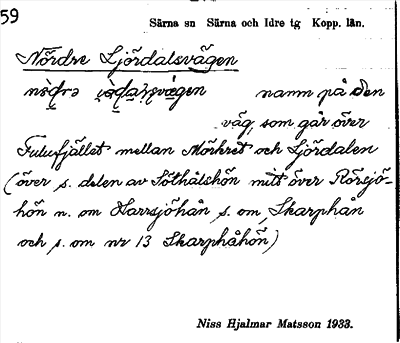 59
Särna sn Särna och Idre tg Kopp. län.
Nördre Ljördalsvägen
namn på den
väg, som går över
Fulufjället mellan Mörkret och Ljördalen
(över s. delen av Söthålshön mitt över Rörsjö-
hön n. om Harrsjöhån s. om Skarphån
och s. om nr 13 Skarphåhön)
Niss Hjalmar Matsson 1933.